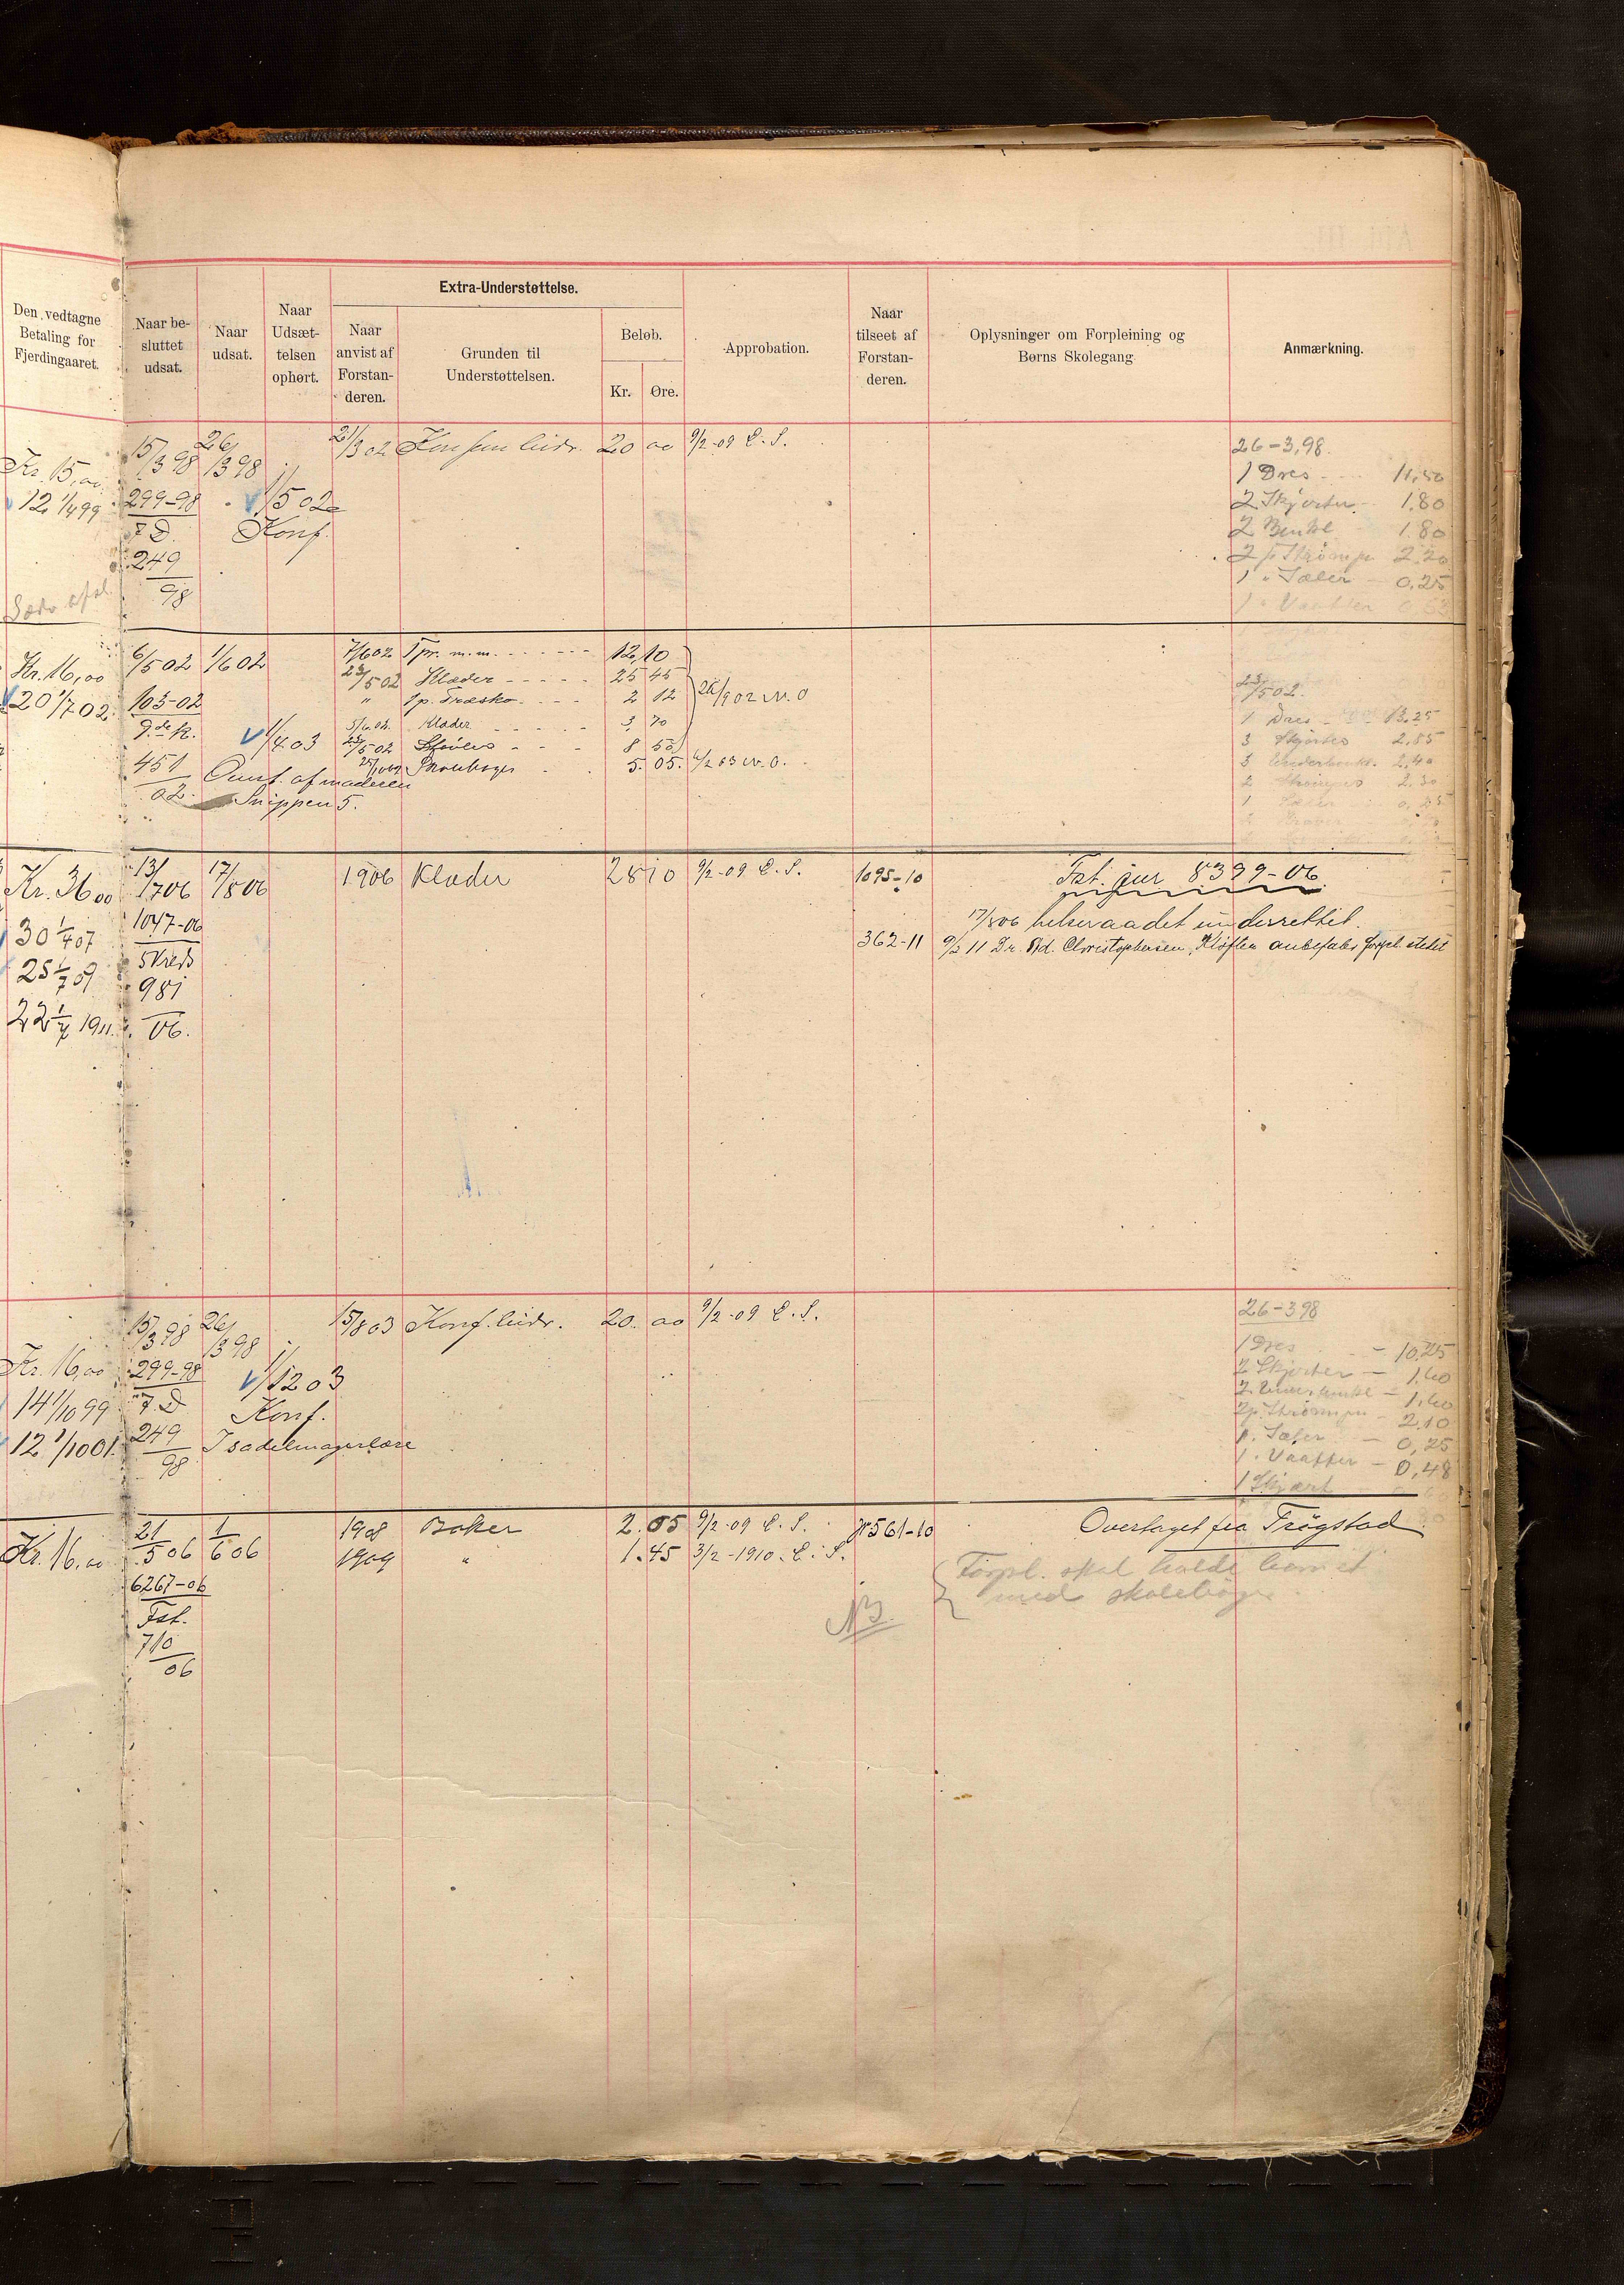 Den vedtagne
Betaling for
Fjerdingaaret.
Naar be-
sluttet
udsat.
Naar
udsat.
Naar
Udsæt-
telsen
ophørt.
Extra-Understøttelse.
Naar
anvist af
Forstan-
deren.
Grunden til
Understøttelsen.
Beløb.
Kr.
Øre.
Approbation.
Naar
tilseet af
Forstan-
deren.
Oplysninger om Forpleining og
Børns Skolegang
Anmærkning.
Kr. 15,00
12 1/4 99
15/3 98
299-98
7 D.
249
98
26/3 98
1/5 02
Konf.
21/3 02 20 00 9/2-09 E. S.
26-3,98.
1 Dres 11,50
2 Skjorter 1.80
2 Benkl 1.80
2 p Strømpe 2.20
1 " Sæler 0.25
1 " Vaatter
Kr. 16,00
20 1/7 02
6/5 02
103-02
9de k.
451
02.
1/6 02
1/4 03
Omf. af maderen
Snippen 5.
7/6 02 1 pr. m.m. 12 10
23/5 02 Klæder 25 45
" 1 p. Træsko 2 12
5/6 02. Klæder 3 70
23/5 02 Støvler 8 50
Skolebøger 5. 05. 6/2 03 N. O.
26/9 02 N. O
23/5 02.
1 Dres 13,25
3 Skjorter 2.85
3 Underbenkl. 2,40
2 Strømper 2.30
1 Sæler 0,25
Kr. 36 00
30 1/4 07
25 1/7 09
22 1/4 1911.
13/7 06
1047-06
5 Kreds
981
06.
17/8 06
1906 Klæder 28 10 9/2-09 E. S.
1095-10
362-11
Fat. jur 8399-06.
17/8 06 helseraadet underrettet.
9/3 11 Dr. Ad. Christophersen, Kløften anbefaler forpl. stedet
Kr. 16,00
14 1/10 99
12 1/10 01.
15/3 98
299-98
7. D
249
98
26/3 98
1/12 03
Konf.
I sadelmagerlære
15/8 03 Konf. klædr. 20. 00 9/2-09 E. S.
26-3 98
1 Dres 10,25
2 Skjorter 1,60
2 Underbenkl 1.60
2 p. Strømper 2.10
1 p. Sæler 0,25
1 " Vaatter 0,48
1 Skjært
Kr. 16,00
21/5 06
6267-06
Fat.
710
06
1/6 06
1908 Bøker 2.05 9/2-09 E. S.
1909 " 1.45 3/2-1910. E. S.
N 561-10
NB.
Overtaget fra Trøgstad
Forpl. skal holde barnet
med skolebøger